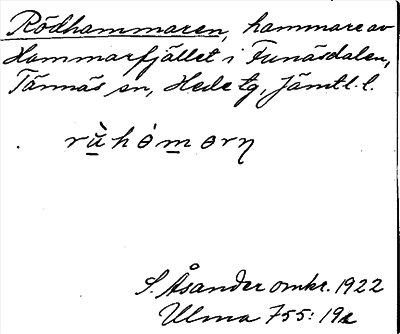 Rödhammaren, hammare av
Hammarfjället i Funäsdalen,
Tännäs sn, Hede tg, Jämtl. l.
rù̱hòm̱ɵrn
S. Åsander omkr. 1922
Ulma 755: 19a